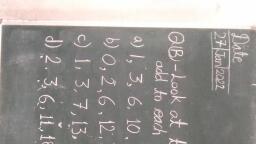 Date
27/Jan/2022
Q(B)-Look at t
add to each
a) 1, 3, 6, 10,
b) 0, 2, 6, 12,
c) 1, 3, 7, 13,
d) 2, 3, 6, 11, 18